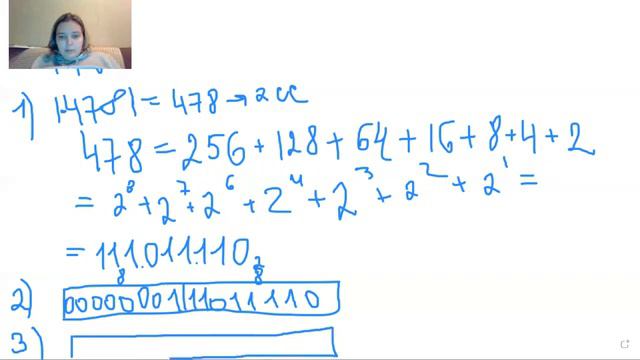 1) |-478| = 478 → 2 СС
478 = 256 + 128 + 64 + 16 + 8 + 4 + 2
= 2⁸ + 2⁷ + 2⁶ + 2⁴ + 2³ + 2² + 2¹ =
= 111.011.110₂
8 8
2) 00000001 11011110
3)